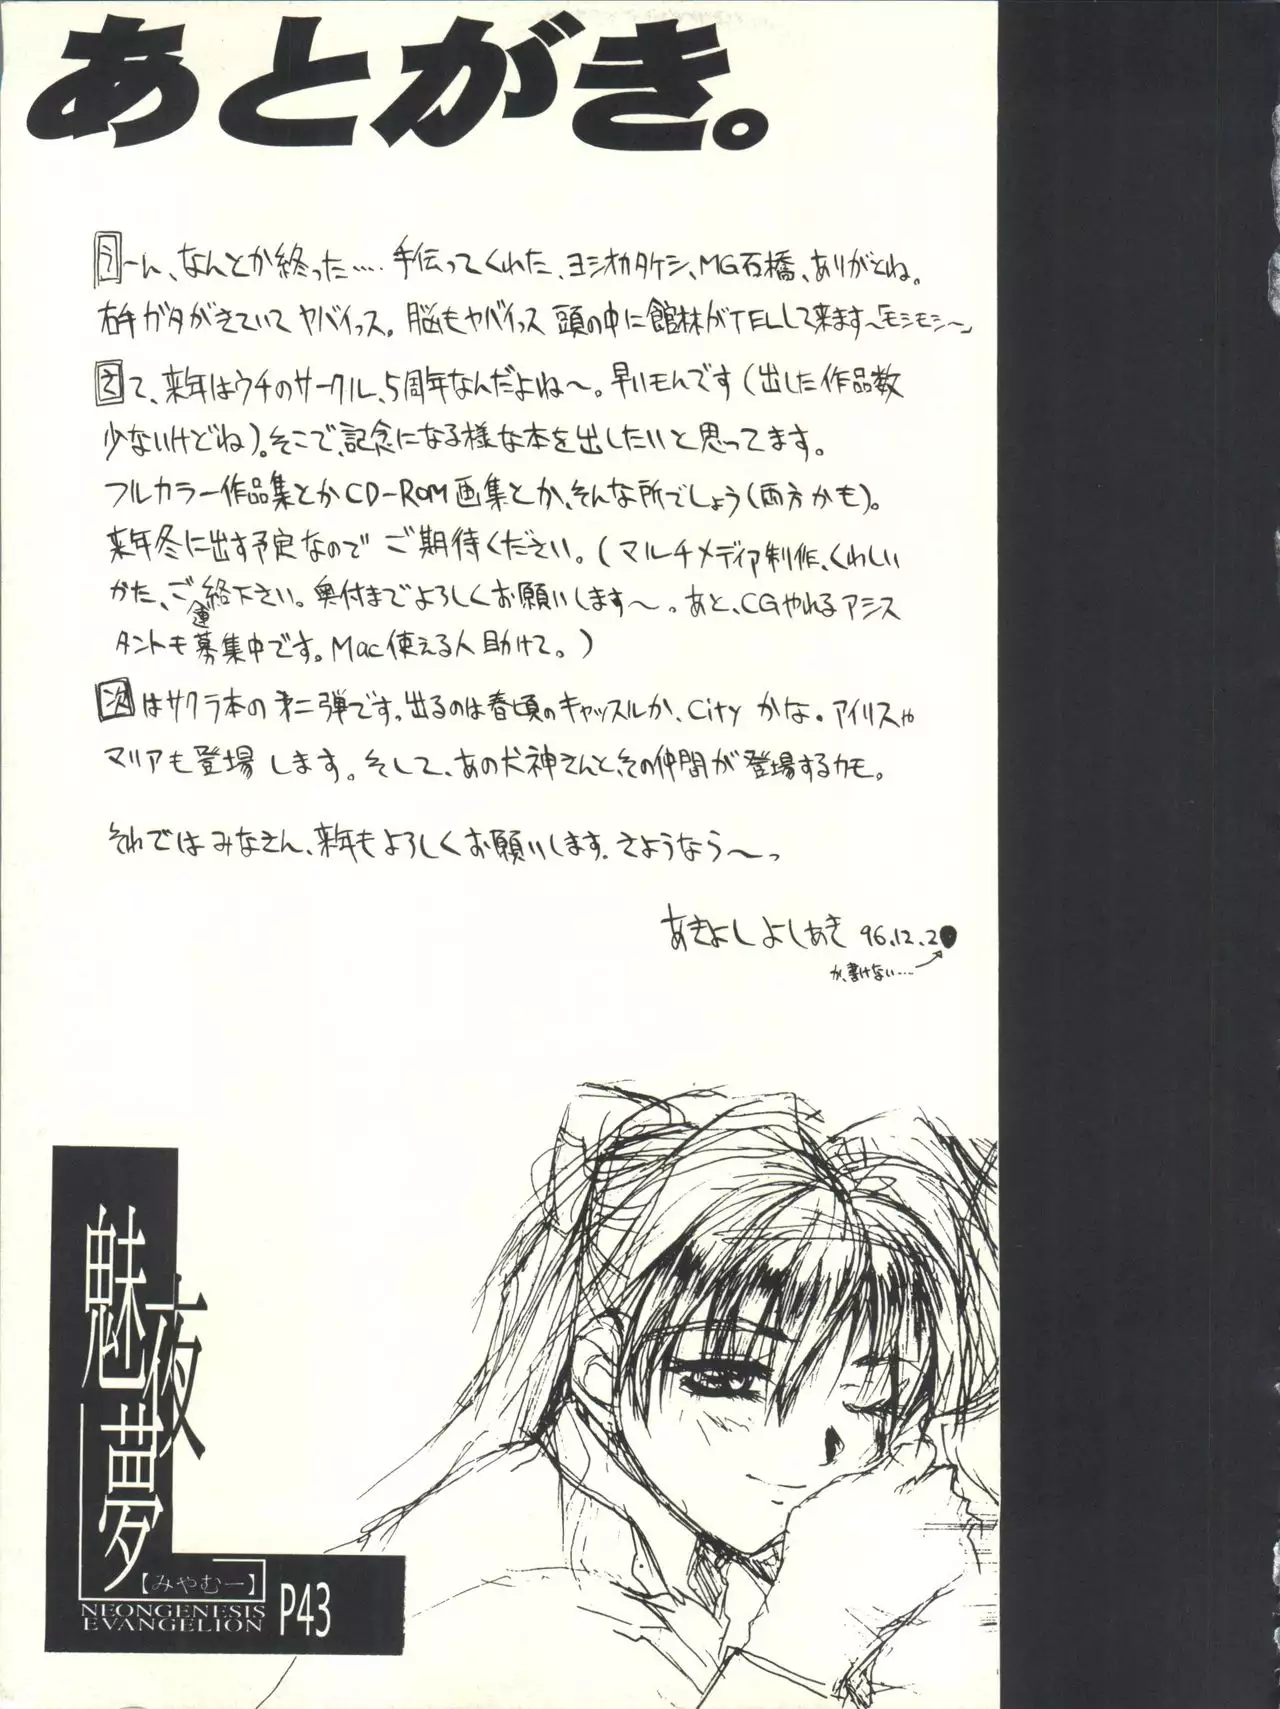 あとがき。
うーん、なんとか終った…. 手伝ってくれた、ヨシオカタケシ、MG石橋、ありがとね。
右手ガタがきていてヤバイっス。脳もヤバイっス 頭の中に館林がTELして来ます〜「モシモシ〜」
さて、来年はウチのサークル、5周年なんだよね〜。早いモんです（出した作品数
少ないけどね）。そこで、記念になる様な本を出したいと思ってます。
フルカラー作品集とかCD-ROM画集とか、そんな所でしょう（両方かも）。
来年冬に出す予定なので ご期待ください。（マルチメディア制作、くわしい
かた、ご連絡下さい。奥付までよろしくお願いします〜。あと、CGやれるアシス
タントも募集中です。Mac使える人助けて。）
次はサクラ本の第二弾です。出るのは春頃のキャッスルか、Cityかな。アイリスや
マリアも登場します。そして、あの犬神さんと、その仲間が登場するカモ。
それではみなさん、来年もよろしくお願いします. さようなら〜っ
あきよしよしあき 96.12.2●
が、書けない….
魅夜夢
【みやむー】
NEONGENESIS
EVANGELION
P43